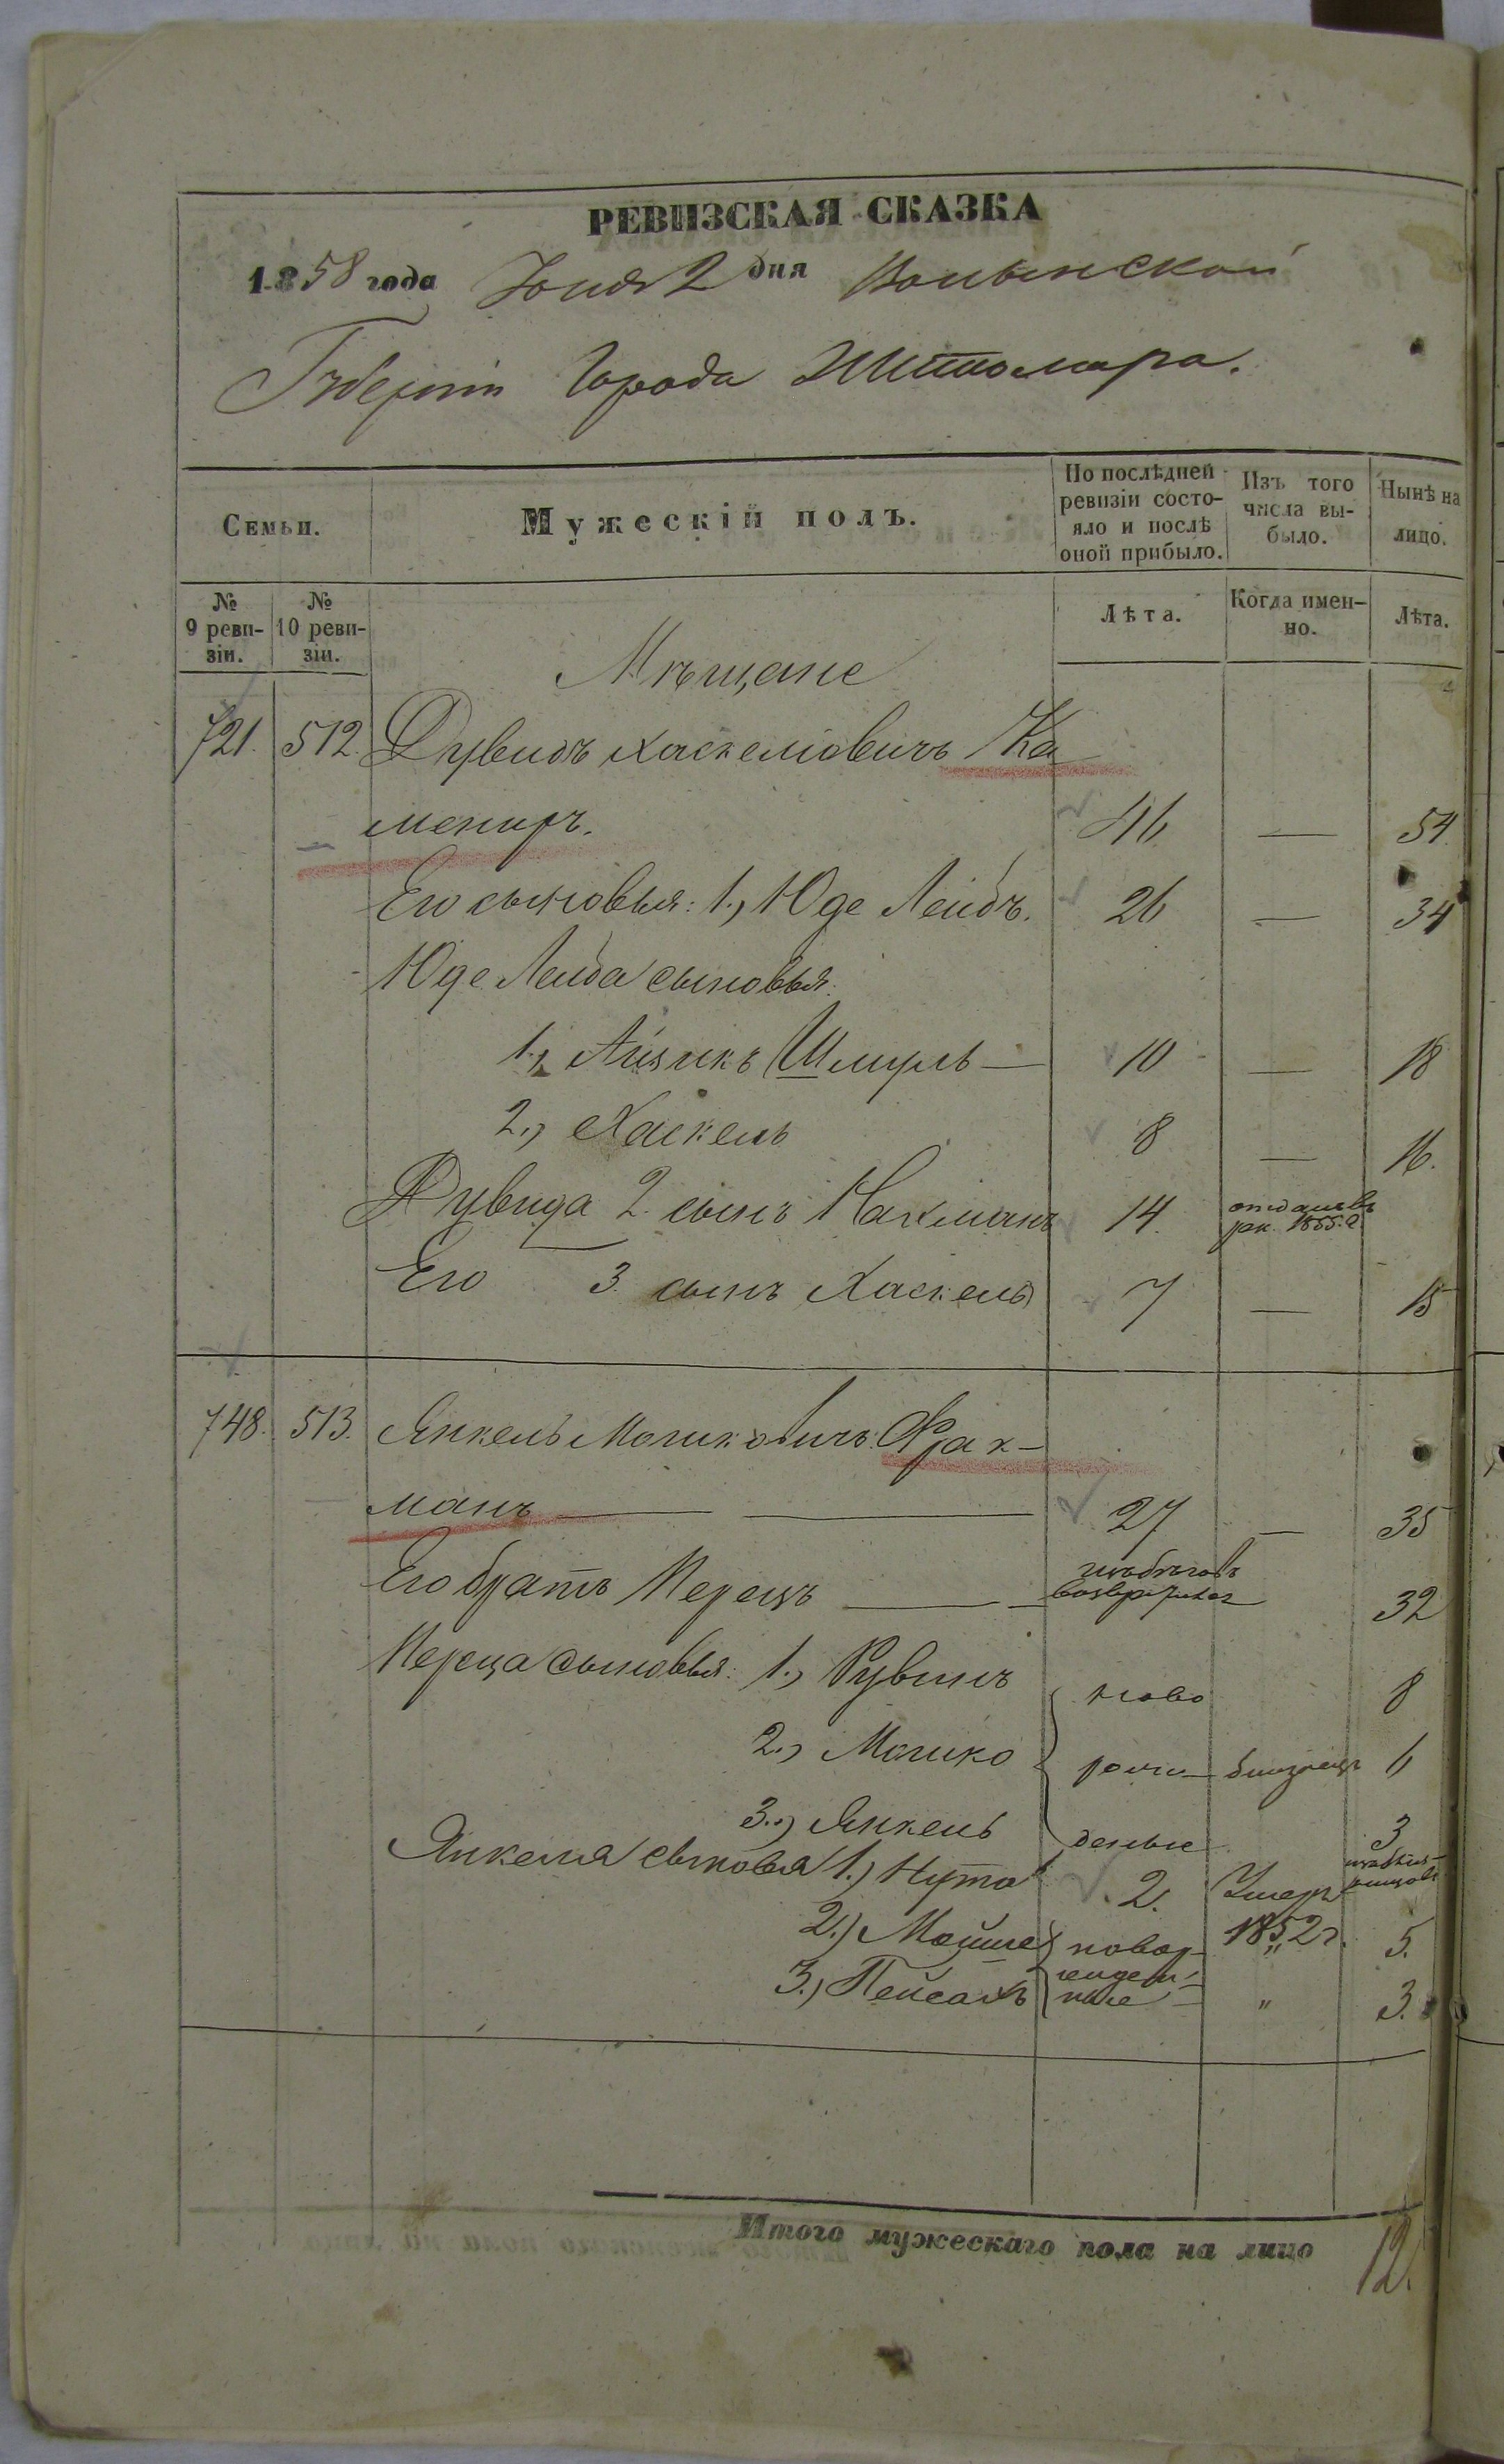 РЕВИЗСКАЯ СКАЗКА
1858 года Іюня 2 дня Волынской
Губерніи Города Житомира.
Семьи.
Мужескій полъ.
По послѣдней ревизіи состо-
яло и послѣ
оной прибыло.
Изъ того
числа вы-
было.
Нынѣ на
лицо.
№
9 реви-
зіи.
№
10 реви-
зіи.
Лѣта.
Когда имен-
но.
Лѣта.
Мѣщане
721. 512 Дувидъ Хаскеліовичъ Ка
мениръ. 46 — 54
Его сыновья: 1., Юде Лейбъ. 26 — 34
Юде Лейба сыновья:
1., Айзикъ Шмуль — 10 — 18
2., Хаскель 8 — 16.
Дувида 2. сынъ Нахманъ 14. отданъ въ
рек. 1855. г.
Его 3. сынъ Хаскель 7 — 15
748. 513. Янкель Мошковичъ Фрах-
манъ — — 27 — 35
Его братъ Перецъ — 32
Переца сыновья: 1., Рувинъ ново 8
2., Мошко 6
3., Янкель 3
Янкеля сыновья 1.) Нута 2. Умеръ
1852 г.
2.) Мойше 5.
3.) Пейсахъ " 3.
Итого мужескаго пола на лицо 12.